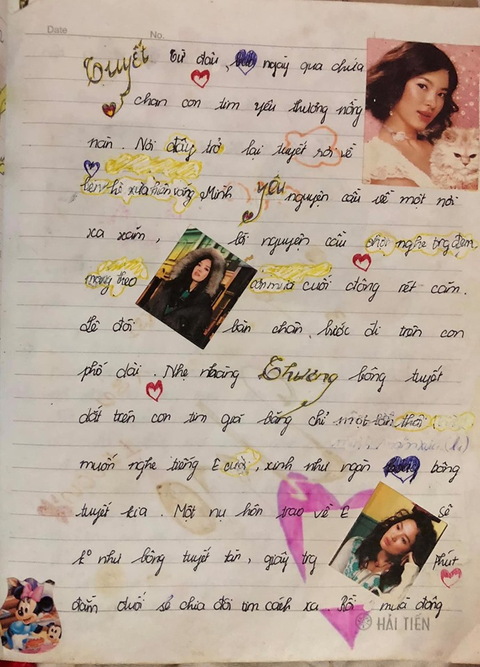 Date No.
Tuyết từ đâu, ngày qua chưa
chan con tim yêu thương nồng
nàn. Nơi đây trở lại tuyết rơi về
bên hè xưa hiên vắng Mình yêu nguyện cầu về một nơi
xa xăm, lời nguyện cầu
mang theo cơn mưa cuối đông rét căm.
Lê đôi bàn chân bước đi trên con
phố dài. Nhẹ nhàng Thương bông tuyết
dắt trên con tim giá băng chỉ một lần thôi
muốn nghe tiếng E cười, xinh như ngàn bông
tuyết kia. Một nụ hôn trao về E sẽ
k như bông tuyết tan, giây trg phút
đắm đuối sẽ chia đôi tim cách xa. Rồi mùa đông
HẢI TIẾN